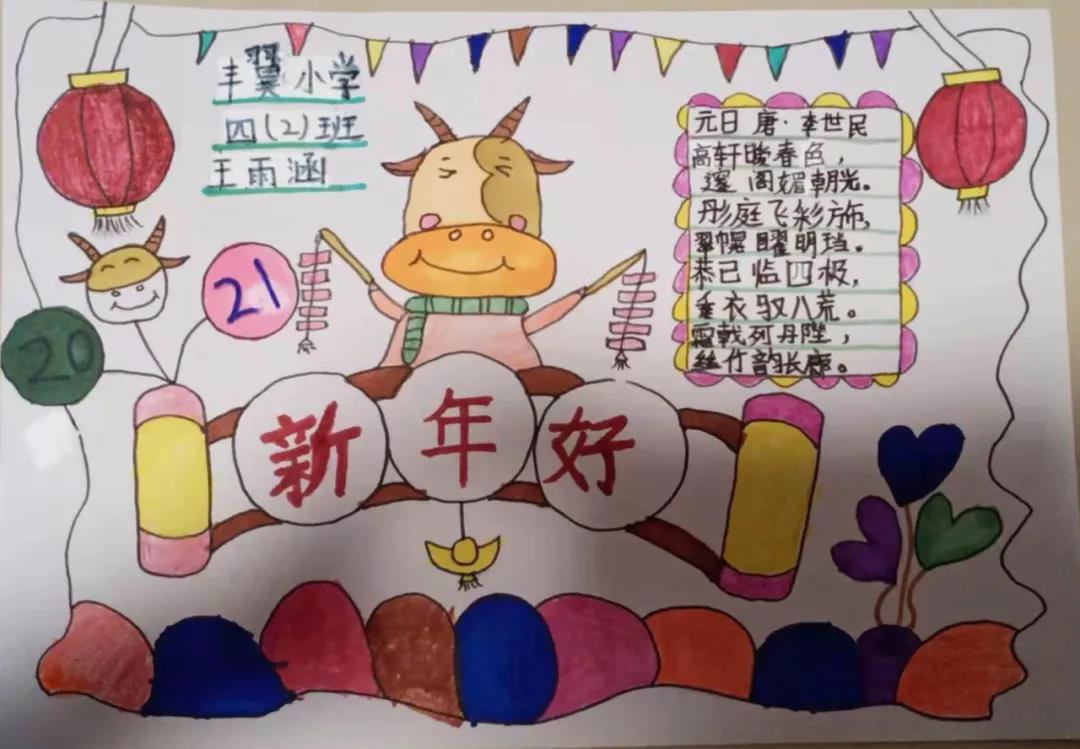 丰翼小学
四(2)班
王雨涵
元日 唐·李世民
高轩暧春色，
邃阁媚朝光。
彤庭飞彩旆，
翠幌曜明珰。
恭己临四极，
垂衣驭八荒。
霜戟列丹陛，
丝竹韵长廊。
20
21
新年好